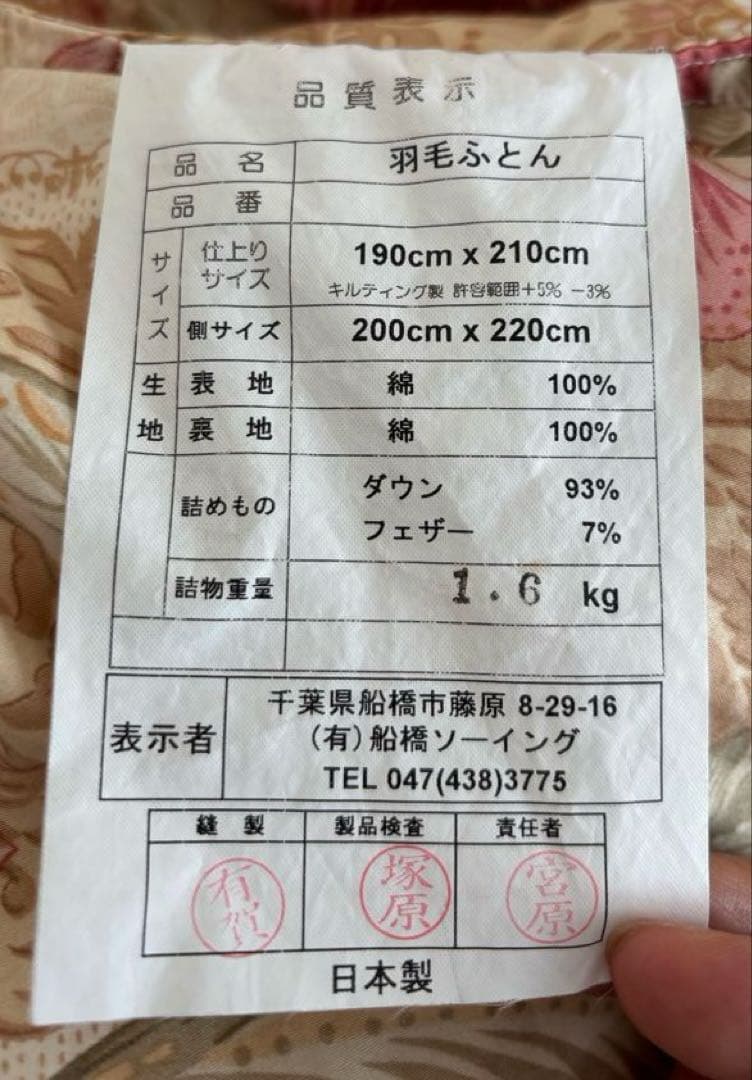 品質表示
品 名 羽毛ふとん
品 番
サイズ 仕上りサイズ 190cm x 210cm
キルティング製 許容範囲+5% -3%
側サイズ 200cm x 220cm
生地 表 地 綿 100%
裏 地 綿 100%
詰めもの ダウン 93%
フェザー 7%
詰物重量 1.6 kg
表示者 千葉県船橋市藤原 8-29-16
(有)船橋ソーイング
TEL 047(438)3775
縫 製 製品検査 責任者
有賀 塚原 宮原
日本製